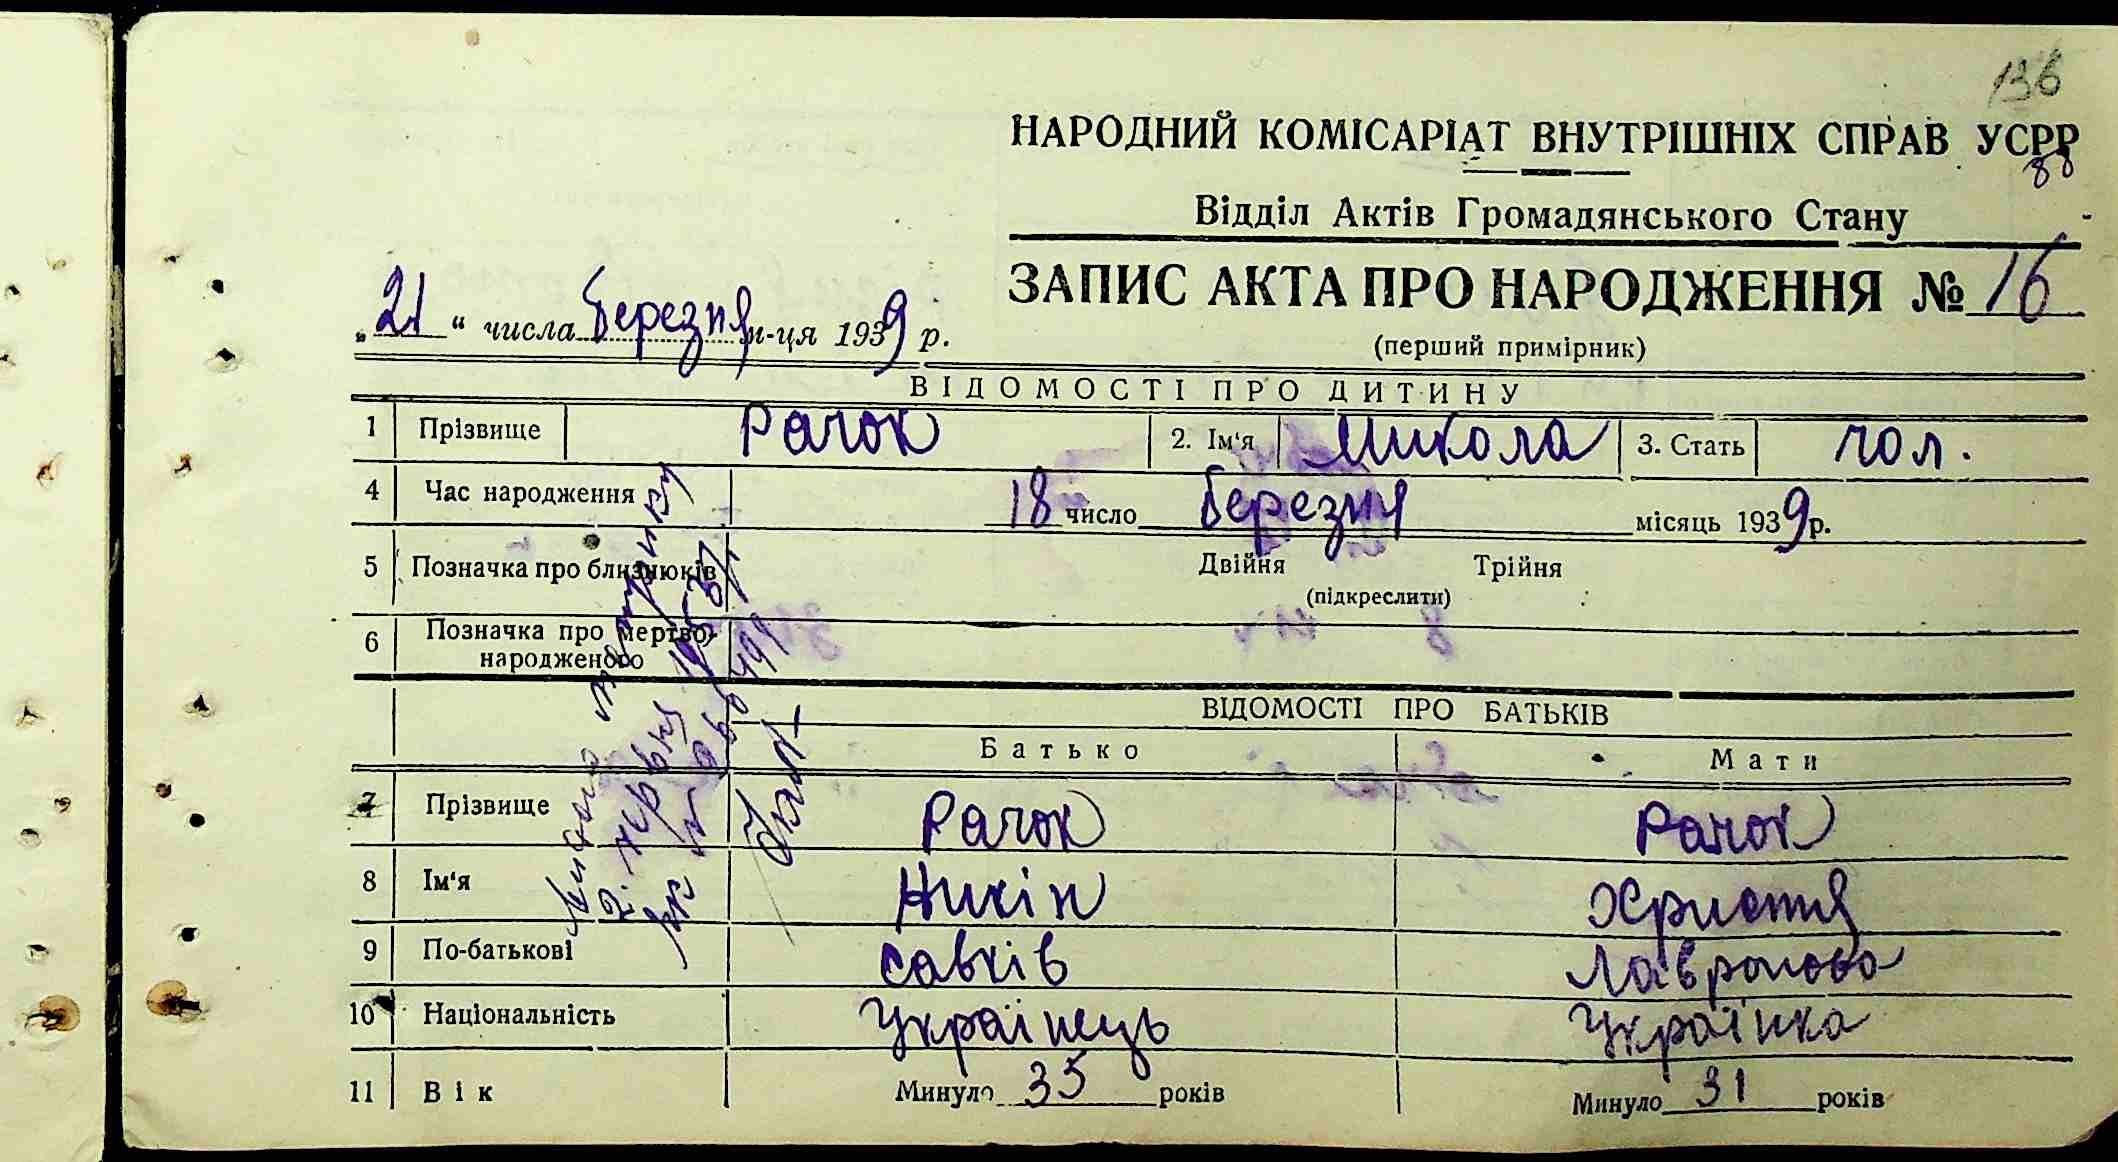 136
НАРОДНИЙ КОМІСАРІАТ ВНУТРІШНІХ СПРАВ УСРР
88
Відділ Актів Громадянського Стану
ЗАПИС АКТА ПРО НАРОДЖЕННЯ № 16
(перший примірник)
„21“ числа Березня м-ця 1939 р.
ВІДОМОСТІ ПРО ДИТИНУ
1 Прізвище Рачок 2. Ім'я Микола 3. Стать чол.
4 Час народження 18 число Березня місяць 1939 р.
5 Позначка про близнюків Двійня Трійня
(підкреслити)
6 Позначка про мертво-
народженого
ВІДОМОСТІ ПРО БАТЬКІВ
Батько Мати
7 Прізвище Рачок Рачок
8 Ім'я Христя
9 По-батькові Савків
10 Національність Українець Українка
11 Вік Минуло 35 років Минуло 31 років